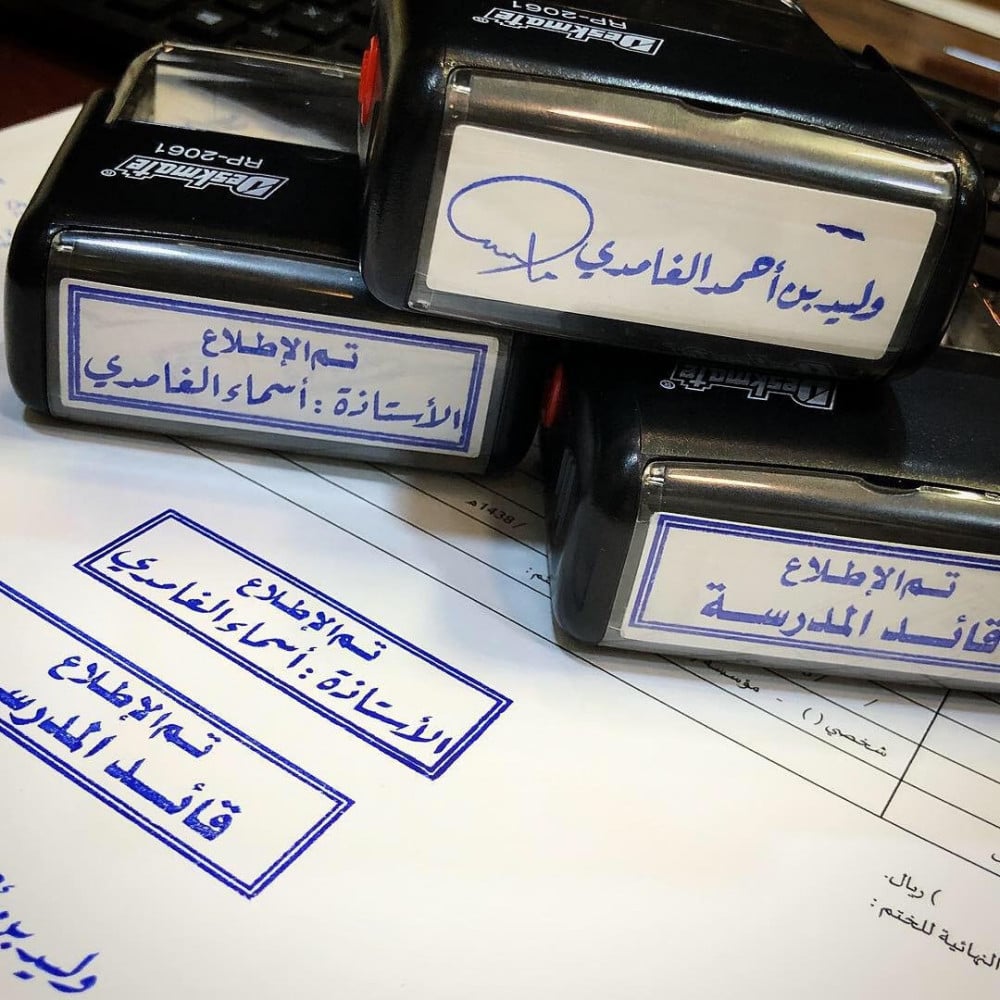 Deskmate®
RP-2061
وليد بن أحمد الغامدي
Deskmate®
RP-2061
تم الإطلاع
الأستاذة : أسماء الغامدي
Deskmate®
تم الإطلاع
قائد المدرسة
/ 1438هـ
تم الإطلاع
الأستاذة : أسماء الغامدي
تم الإطلاع
قائد المدرسة
شخصي ( ) - مؤسسة
) ريال.
النهائية للختم :
وليد بن